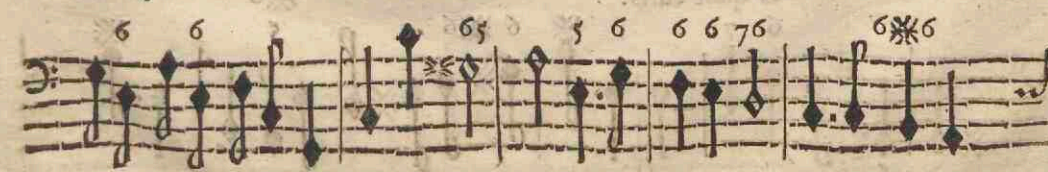 6 6 65 5 6 6 6 76 6 6